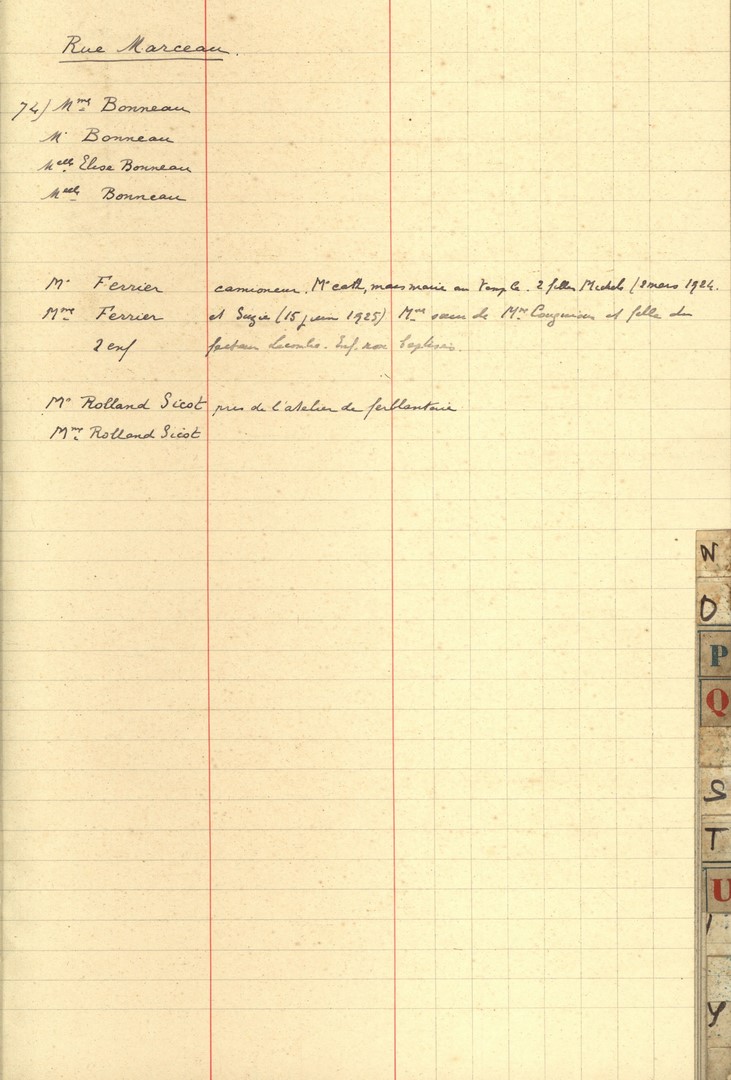 Rue Marceau.
74) Mme Bonneau
Mr Bonneau
Melle Elise Bonneau
Melle Bonneau
Mr Ferrier camioneur. Mr cath, mais marié au Temple. 2 filles Michele (2 mars 1924.
Mme Ferrier et Suzie (15 juin 1925) Mme soeur de Mme et fille du
2 enf facteur Lacombe. Enf. non baptisés.
Mr Rolland Sicot près de l'atelier de ferblanterie
Mme Rolland Sicot
N
O
P
Q
S
T
U
Y